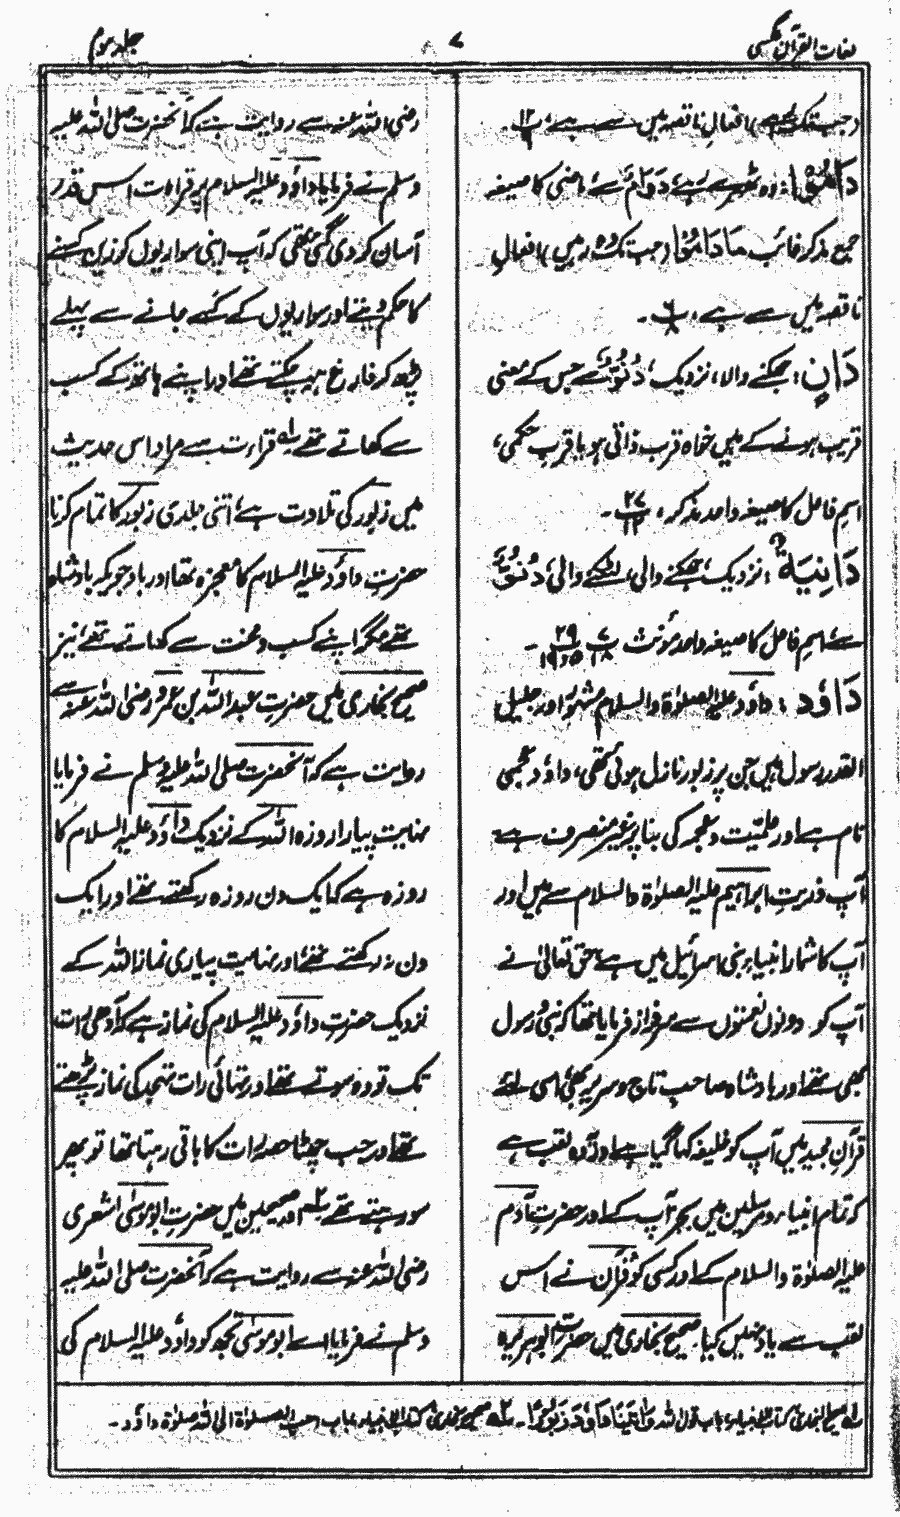 لغات القرآن عکسی
۷
جلد سوم
(جب تک رہے) افعالِ ناقصہ میں سے ہے، ۱۲/۹ پ۔
دَامُوْا: وہ ٹھہرے رہے، دَوَامٌ سے ماضی کا صیغہ
جمع مذکر غائب مَا دَامُوْا (جب تک وہ رہیں) افعالِ
ناقصہ میں سے ہے، پ ۶/۸ ۔
دَانٍ: جھکنے والا، نزدیک، دُنُوٌّ سے جس کے معنی
قریب ہونے کے ہیں خواہ قرب ذاتی ہو یا قربِ حکمی،
اسمِ فاعل کا صیغہ واحد مذکر، ۲۷/۱۳ ۔
دَانِیَةٌ: نزدیک، جھکنے والی، لٹکنے والی، دُنُوٌّ
سے، اسمِ فاعل کا صیغہ واحد مؤنث پ ۷/۱۸ ۲۹/۵و۱۹ ۔
دَاوٗد: داؤد علیہ الصلوٰۃ والسلام مشہور اور جلیل
القدر رسول ہیں جن پر زبور نازل ہوئی تھی، داؤد عجمی
نام ہے اور علمیّت و عجمہ کی بنا پر غیر منصرف ہے
آپ ذریتِ ابراہیم علیہ الصلوٰۃ والسلام سے ہیں اور
آپ کا شمار انبیاء بنی اسرائیل میں ہے، حق تعالیٰ نے
آپ کو دونوں نعمتوں سے سرفراز فرمایا تھا کہ نبی و رسول
بھی تھے اور بادشاہ صاحبِ تاج و سریر بھی، اسی لئے
قرآن مجید میں آپ کو خلیفہ کہا گیا ہے اور وہ لقب ہے
کہ تمام انبیاء و مرسلین میں بجز آپ کے اور حضرت آدم
علیہ الصلوٰۃ والسلام کے اور کسی کو قرآن نے اس
لقب سے یاد نہیں کیا۔ صحیح بخاری میں حضرت ابوہریرہ
رضی اللہ عنہ سے روایت ہے کہ آنحضرت صلی اللہ علیہ
وسلم نے فرمایا داؤد علیہ السلام پر قراءت اس قدر
آسان کر دی گئی تھی کہ آپ اپنی سواریوں کو زین کسنے
کا حکم دیتے اور سواریوں کے کسے جانے سے پہلے
پڑھ کر فارغ ہو چکتے تھے اور اپنے ہاتھ کے کسب
سے کھاتے تھے۔ قراءت سے مراد اس حدیث
میں زبور کی تلاوت ہے، اتنی جلدی زبور کا تمام کرنا
حضرت داؤد علیہ السلام کا معجزہ تھا اور باوجودیکہ بادشاہ
تھے مگر اپنے کسب و محنت سے کھاتے تھے، نیز
صحیح بخاری میں حضرت عبد اللہ بن عمرو رضی اللہ عنہ سے
روایت ہے کہ آنحضرت صلی اللہ علیہ وسلم نے فرمایا
نہایت پیارا روزہ اللہ کے نزدیک داؤد علیہ السلام کا
روزہ ہے کہ ایک دن روزہ رکھتے تھے اور ایک
دن نہ رکھتے تھے، اور نہایت پیاری نماز اللہ کے
نزدیک حضرت داؤد علیہ السلام کی نماز ہے کہ آدھی رات
تک تو وہ سوتے تھے اور تہائی رات تہجد کی نماز پڑھتے
تھے اور جب چھٹا حصہ رات کا باقی رہتا تھا تو پھر
سو رہتے تھے اور صحیحین میں حضرت ابو موسیٰ اشعری
رضی اللہ عنہ سے روایت ہے کہ آنحضرت صلی اللہ علیہ
وسلم نے فرمایا اے ابو موسیٰ تجھ کو داؤد علیہ السلام کی
لہ صحیح البخاری کتاب الانبیاء باب قول اللہ وَاٰتَيْنَا دَاوٗدَ زَبُوْرًا۔ صحیح بخاری کتاب الانبیاء باب احب الصلوٰۃ الی اللہ صلوٰۃ داؤد۔